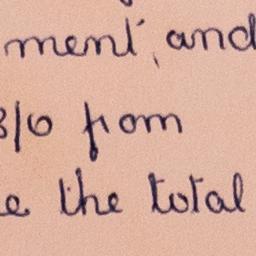 ment, and
8/6 from
e the total